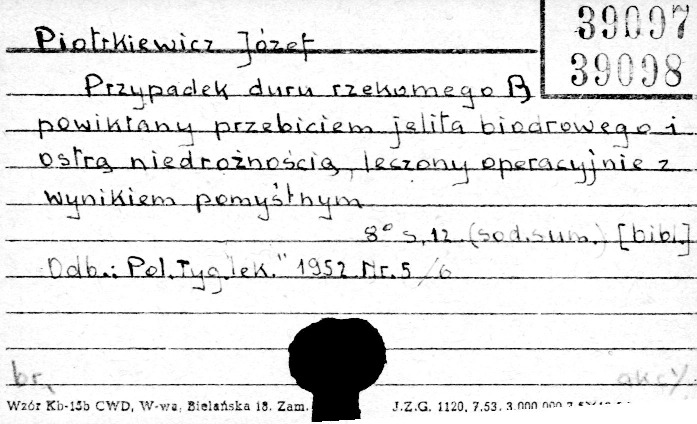 39097
39098
Piotrkiewicz Józef
Przypadek duru rzekomego B,
powikłany przebiciem jelita biodrowego i
ostrą niedrożnością, leczony operacyjnie z
wynikiem pomyślnym
8° s. 12 (sod. sum.) [bibl.]
Odb.: Pol. Tyg. lek." 1952 Nr. 5/6
br. akc
Wzór Kb-15b CWD, W-wa, Bielańska 18. Zam. J.Z.G. 1120, 7.53. 3.000.000